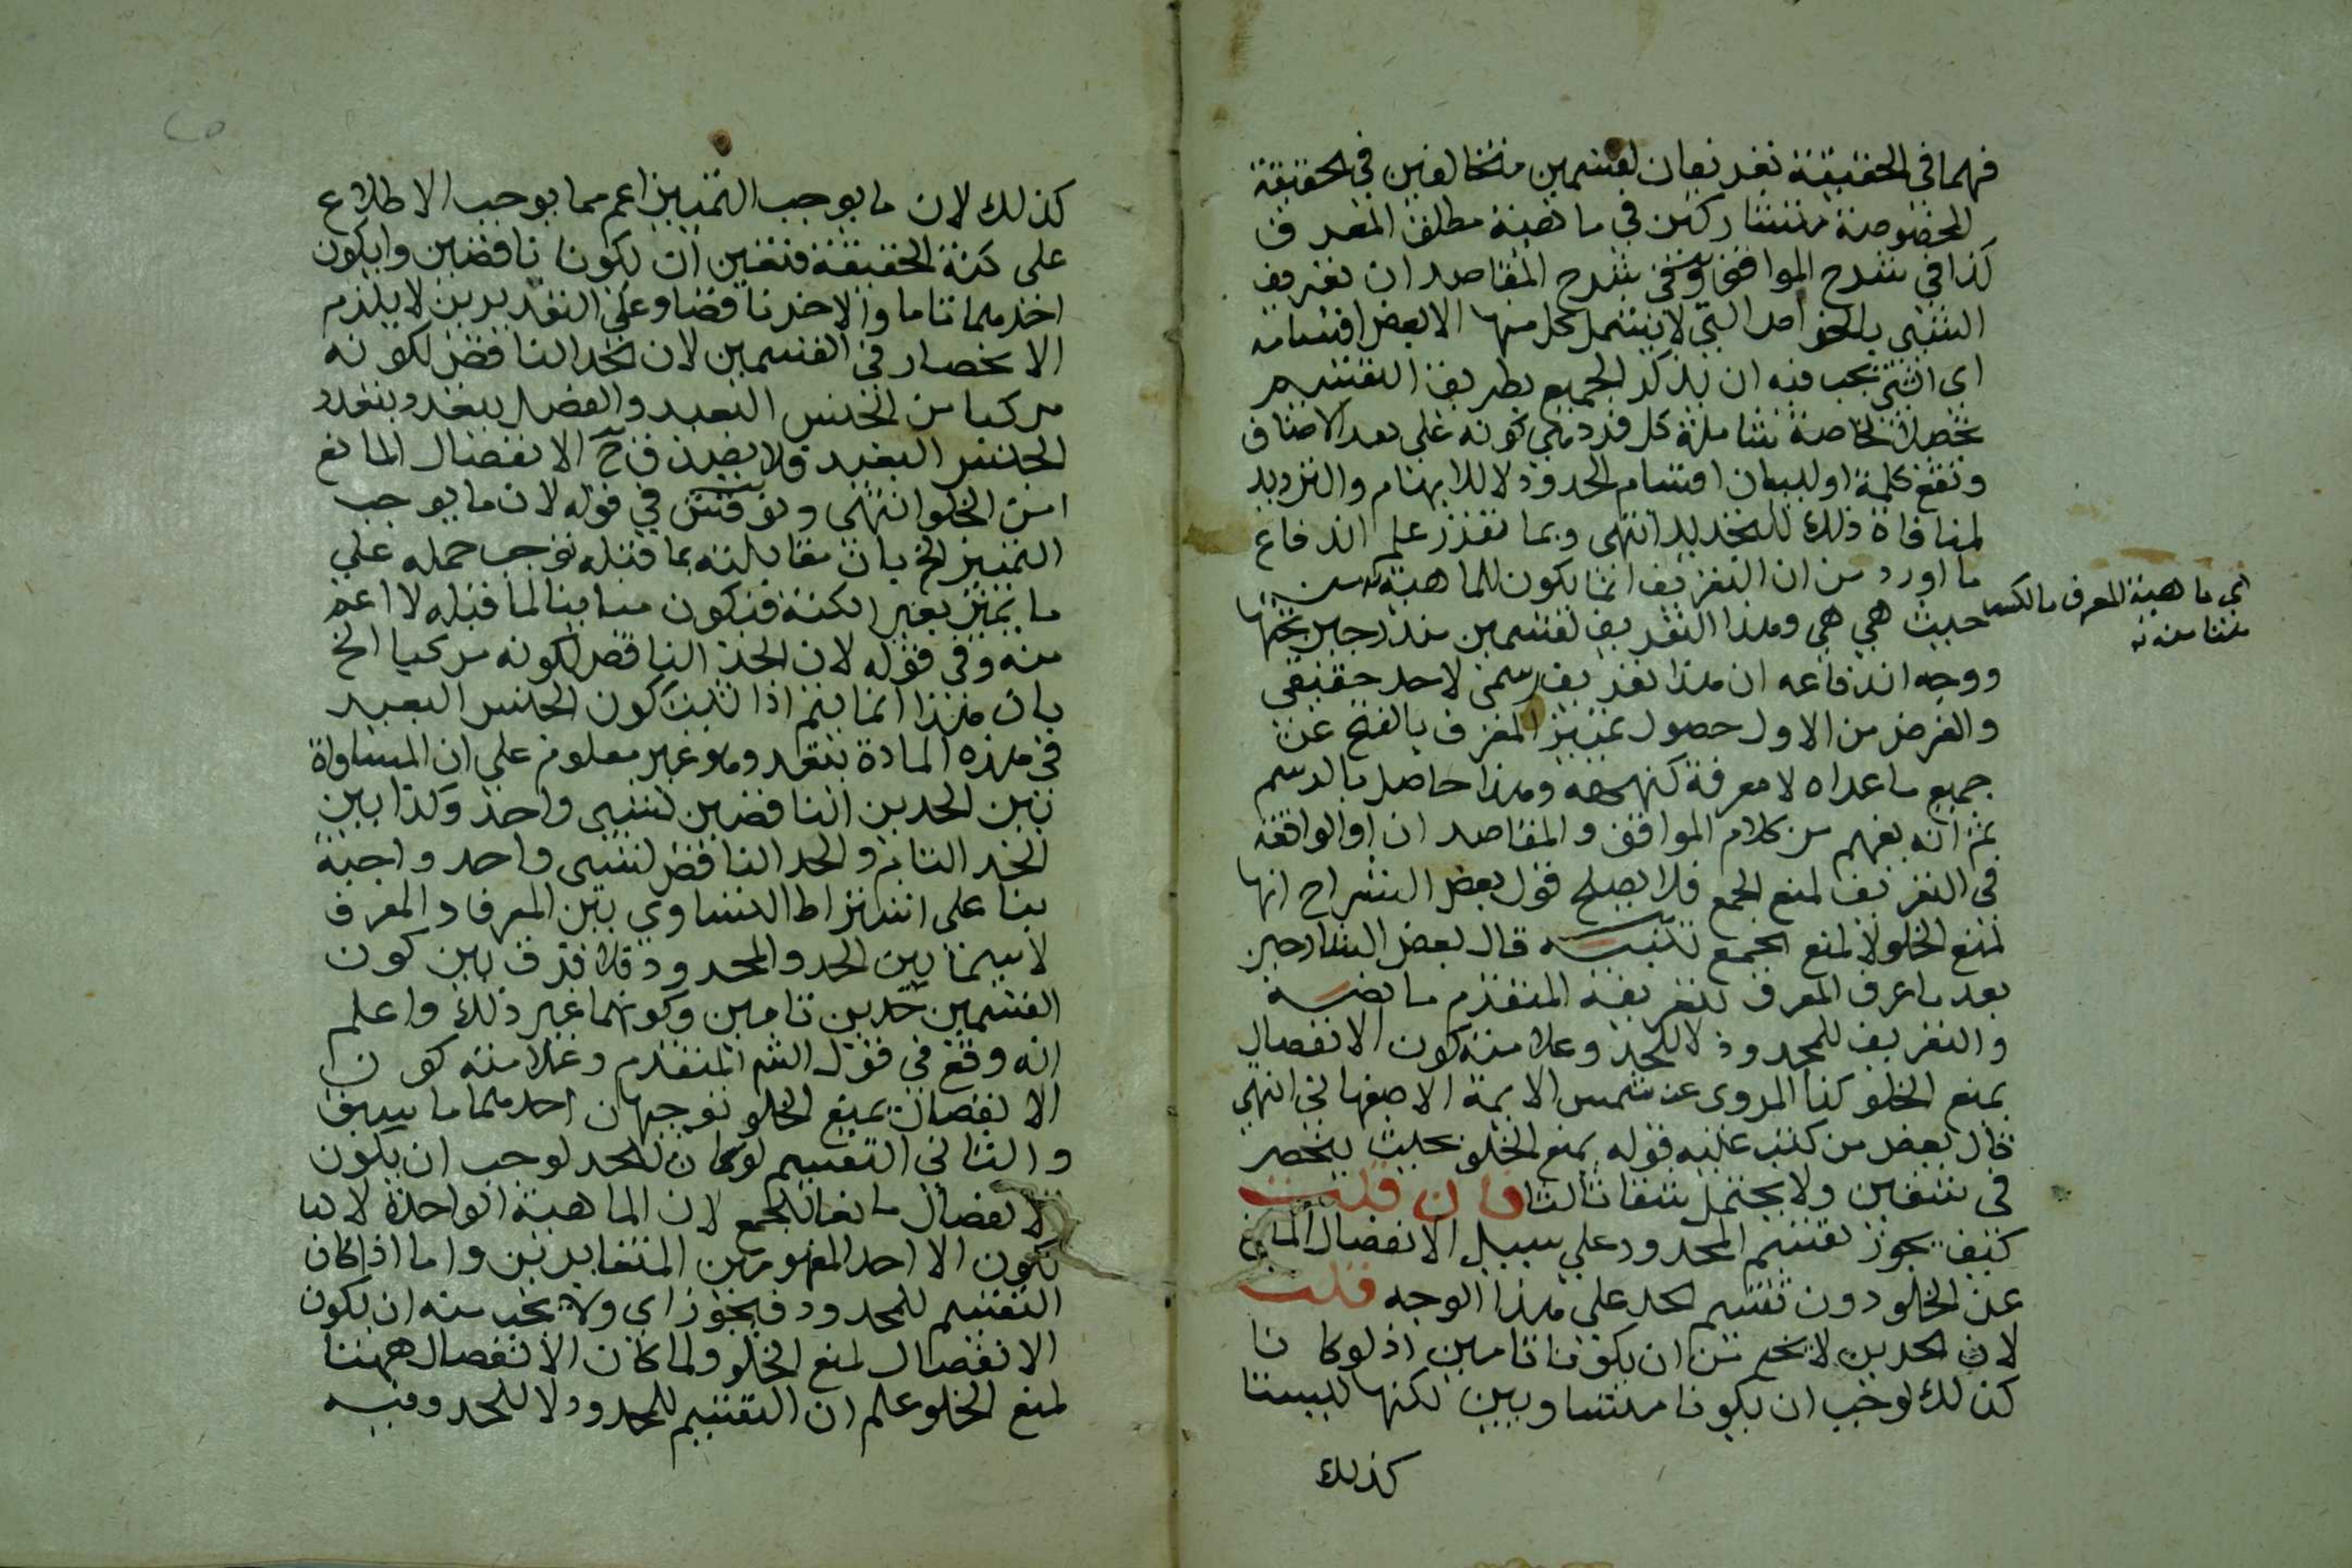 فهما في الحقيقة تعريفان لقسمين متخالفين في الحقيقة
المخصوصة متشاركين في ماهية مطلق المعرف
كذا في شرح المواقف وفي شرح المقاصد ان تعريف
الشيء بالخواص التي لا يشمل كل منها الا بعض اقسامه
اي الشيء يجب فيه ان يذكر الجميع بطريق التقسيم
تحصيلا لخاصة شاملة لكل فرد هي كونه على بعد الاصناف
وتقع كلمة او لبيان اقسام المحدود لا للابهام والترديد
لمنافاة ذلك للتحديد انتهى وبما تقرر علم اندفاع
ما اورد من ان التعريف انما يكون للماهية من
حيث هي هي وهذا التعريف لقسمين مندرجين تحتها
ووجه اندفاعه ان هذا تعريف رسمي لا حد حقيقي
والغرض من الاول حصول تمييز المعرف بالفتح عن
جميع ما عداه لا معرفة كنهه وهذا حاصل بالرسم
ثم انه يفهم من كلام المواقف والمقاصد ان او الواقعة
في التعريف لمنع الجمع فلا يصلح قول بعض الشراح انها
لمنع الخلو لا لمنع الجمع تنبيه قال بعض الشارحين
بعد ما عرف المعرف بتعريفه المتقدم ما نصه
والتعريف للمحدود لا للحد وعلامته كون الانفصال
بمنع الخلو كذا المروى عن شمس الايمة الاصفهاني انتهى
قال بعض من كتب عليه قوله بمنع الخلو بحيث ينحصر
في شقين ولا يحتمل شقا ثالثا فان قلت
كيف يجوز تقسيم المحدود على سبيل الانفصال المانع
عن الخلو دون تقسيم الحد على هذا الوجه قلت
لان الحدين لا يخ من ان يكونا تامين اذ لو كانا
كذلك لوجب ان يكونا متساويين لكنها ليستا
كذلك
اي ماهية المعرف بالكسر
كذلك لان ما يوجب التمييز اعم مما يوجب الاطلاع
على كنه الحقيقة فتعين ان يكونا ناقصين او يكون
احدهما تاما والاخر ناقصا وعلى التقديرين لا يلزم
الانحصار في القسمين لان الحد الناقص لكونه
مركبا من الجنس البعيد والفصل يتعدد بتعدد
الجنس البعيد فلا يصدق ح الانفصال المانع
من الخلو انتهى ونوقش في قوله لان ما يوجب
التمييز الخ بان مقابلته بما قبله توجب حمله على
ما يميز بغير الكنه فيكون مباينا لما قبله لا اعم
منه وفي قوله لان الحد الناقص لكونه مركبا الخ
بان هذا انما يتم اذا ثبت كون الجنس البعيد
في هذه المادة بتعدد وهو غير معلوم على ان المساواة
بين الحدين الناقصين لشيء واحد وكذا بين
الحد التام والحد الناقص لشيء واحد واجبة
بنا على اشتراط التساوي بين المعرف والمعرف
لاسيما بين الحد والمحدود فلا فرق بين كون
القسمين حدين تامين وكونهما غير ذلك واعلم
انه وقع في قول الشم المتقدم وعلامته كون
الانفصال بمنع الخلو توجيهان احدهما ما سبق
والثاني التقسيم لو كان للحد لوجب ان يكون
الانفصال مانعا للجمع لان الماهية الواحدة لا
تكون الا احد المفهومين المتغايرين واما اذا كان
التقسيم للمحدود فيجوز اي ولا يجب منه ان يكون
الانفصال لمنع الخلو ولما كان الانفصال ههنا
لمنع الخلو علم ان التقسيم للمحدود لا للحد وفيه